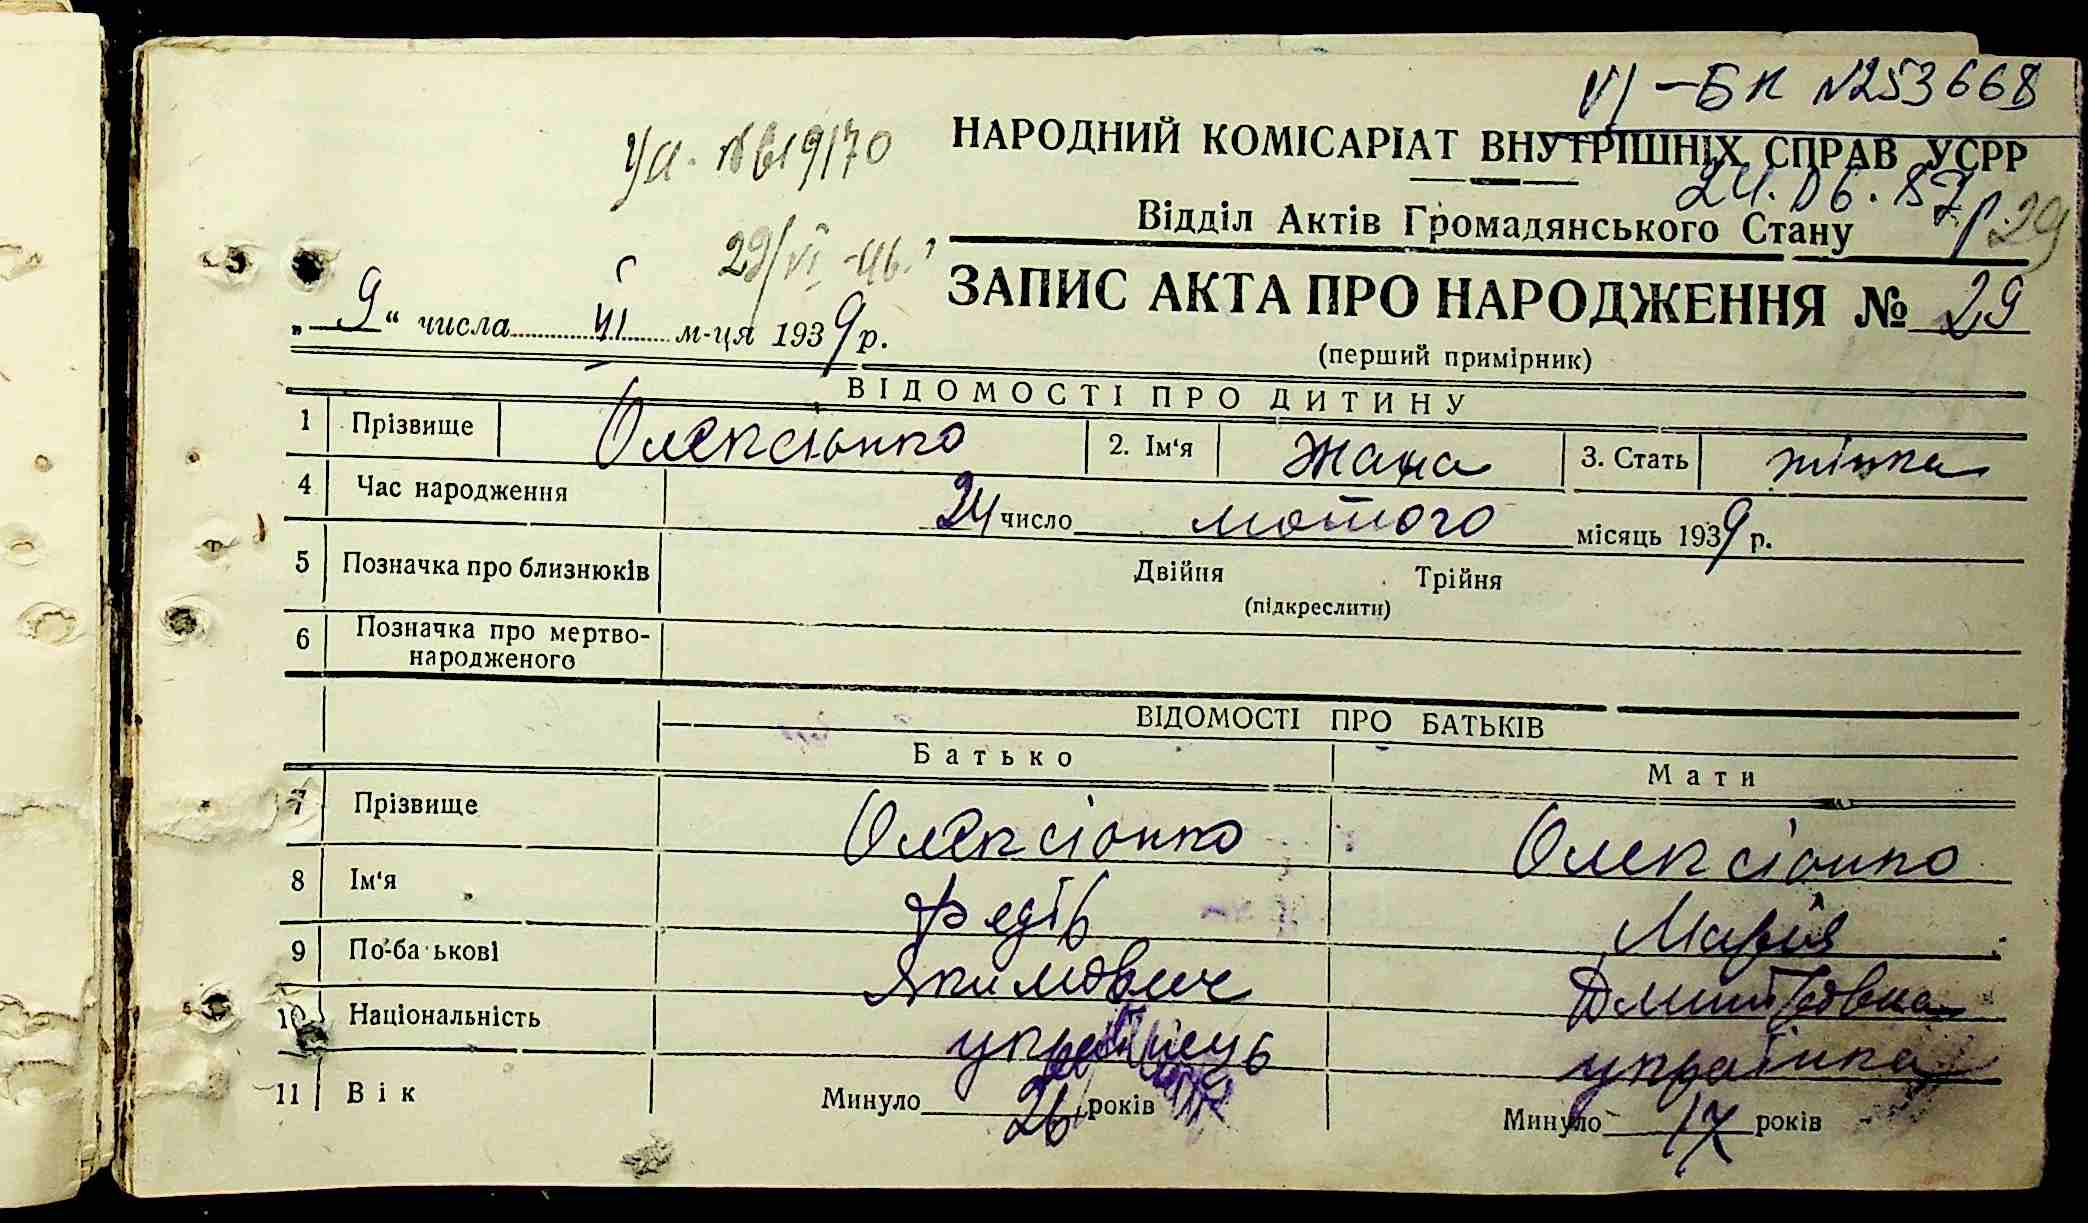 VI – БК №253668
НАРОДНИЙ КОМІСАРІАТ ВНУТРІШНІХ СПРАВ УСРР
24.06.87р.
Відділ Актів Громадянського Стану
29
29/VI -46
ЗАПИС АКТА ПРО НАРОДЖЕННЯ № 29
„ 9 “ числа VI м-ця 1939 р.
(перший примірник)
ВІДОМОСТІ ПРО ДИТИНУ
1 Прізвище Олексієнко 2. Ім‘я Жана 3. Стать жінка
4 Час народження 24 число лютого місяць 1939 р.
5 Позначка про близнюків Двійня Трійня
(підкреслити)
6 Позначка про мертво-
народженого
ВІДОМОСТІ ПРО БАТЬКІВ
Батько Мати
7 Прізвище Олексієнко Олексієнко
8 Ім‘я Федір Марія
9 По-батькові Якимович Дмитровна
10 Національність українець українка
11 Вік Минуло 26 років Минуло 17 років